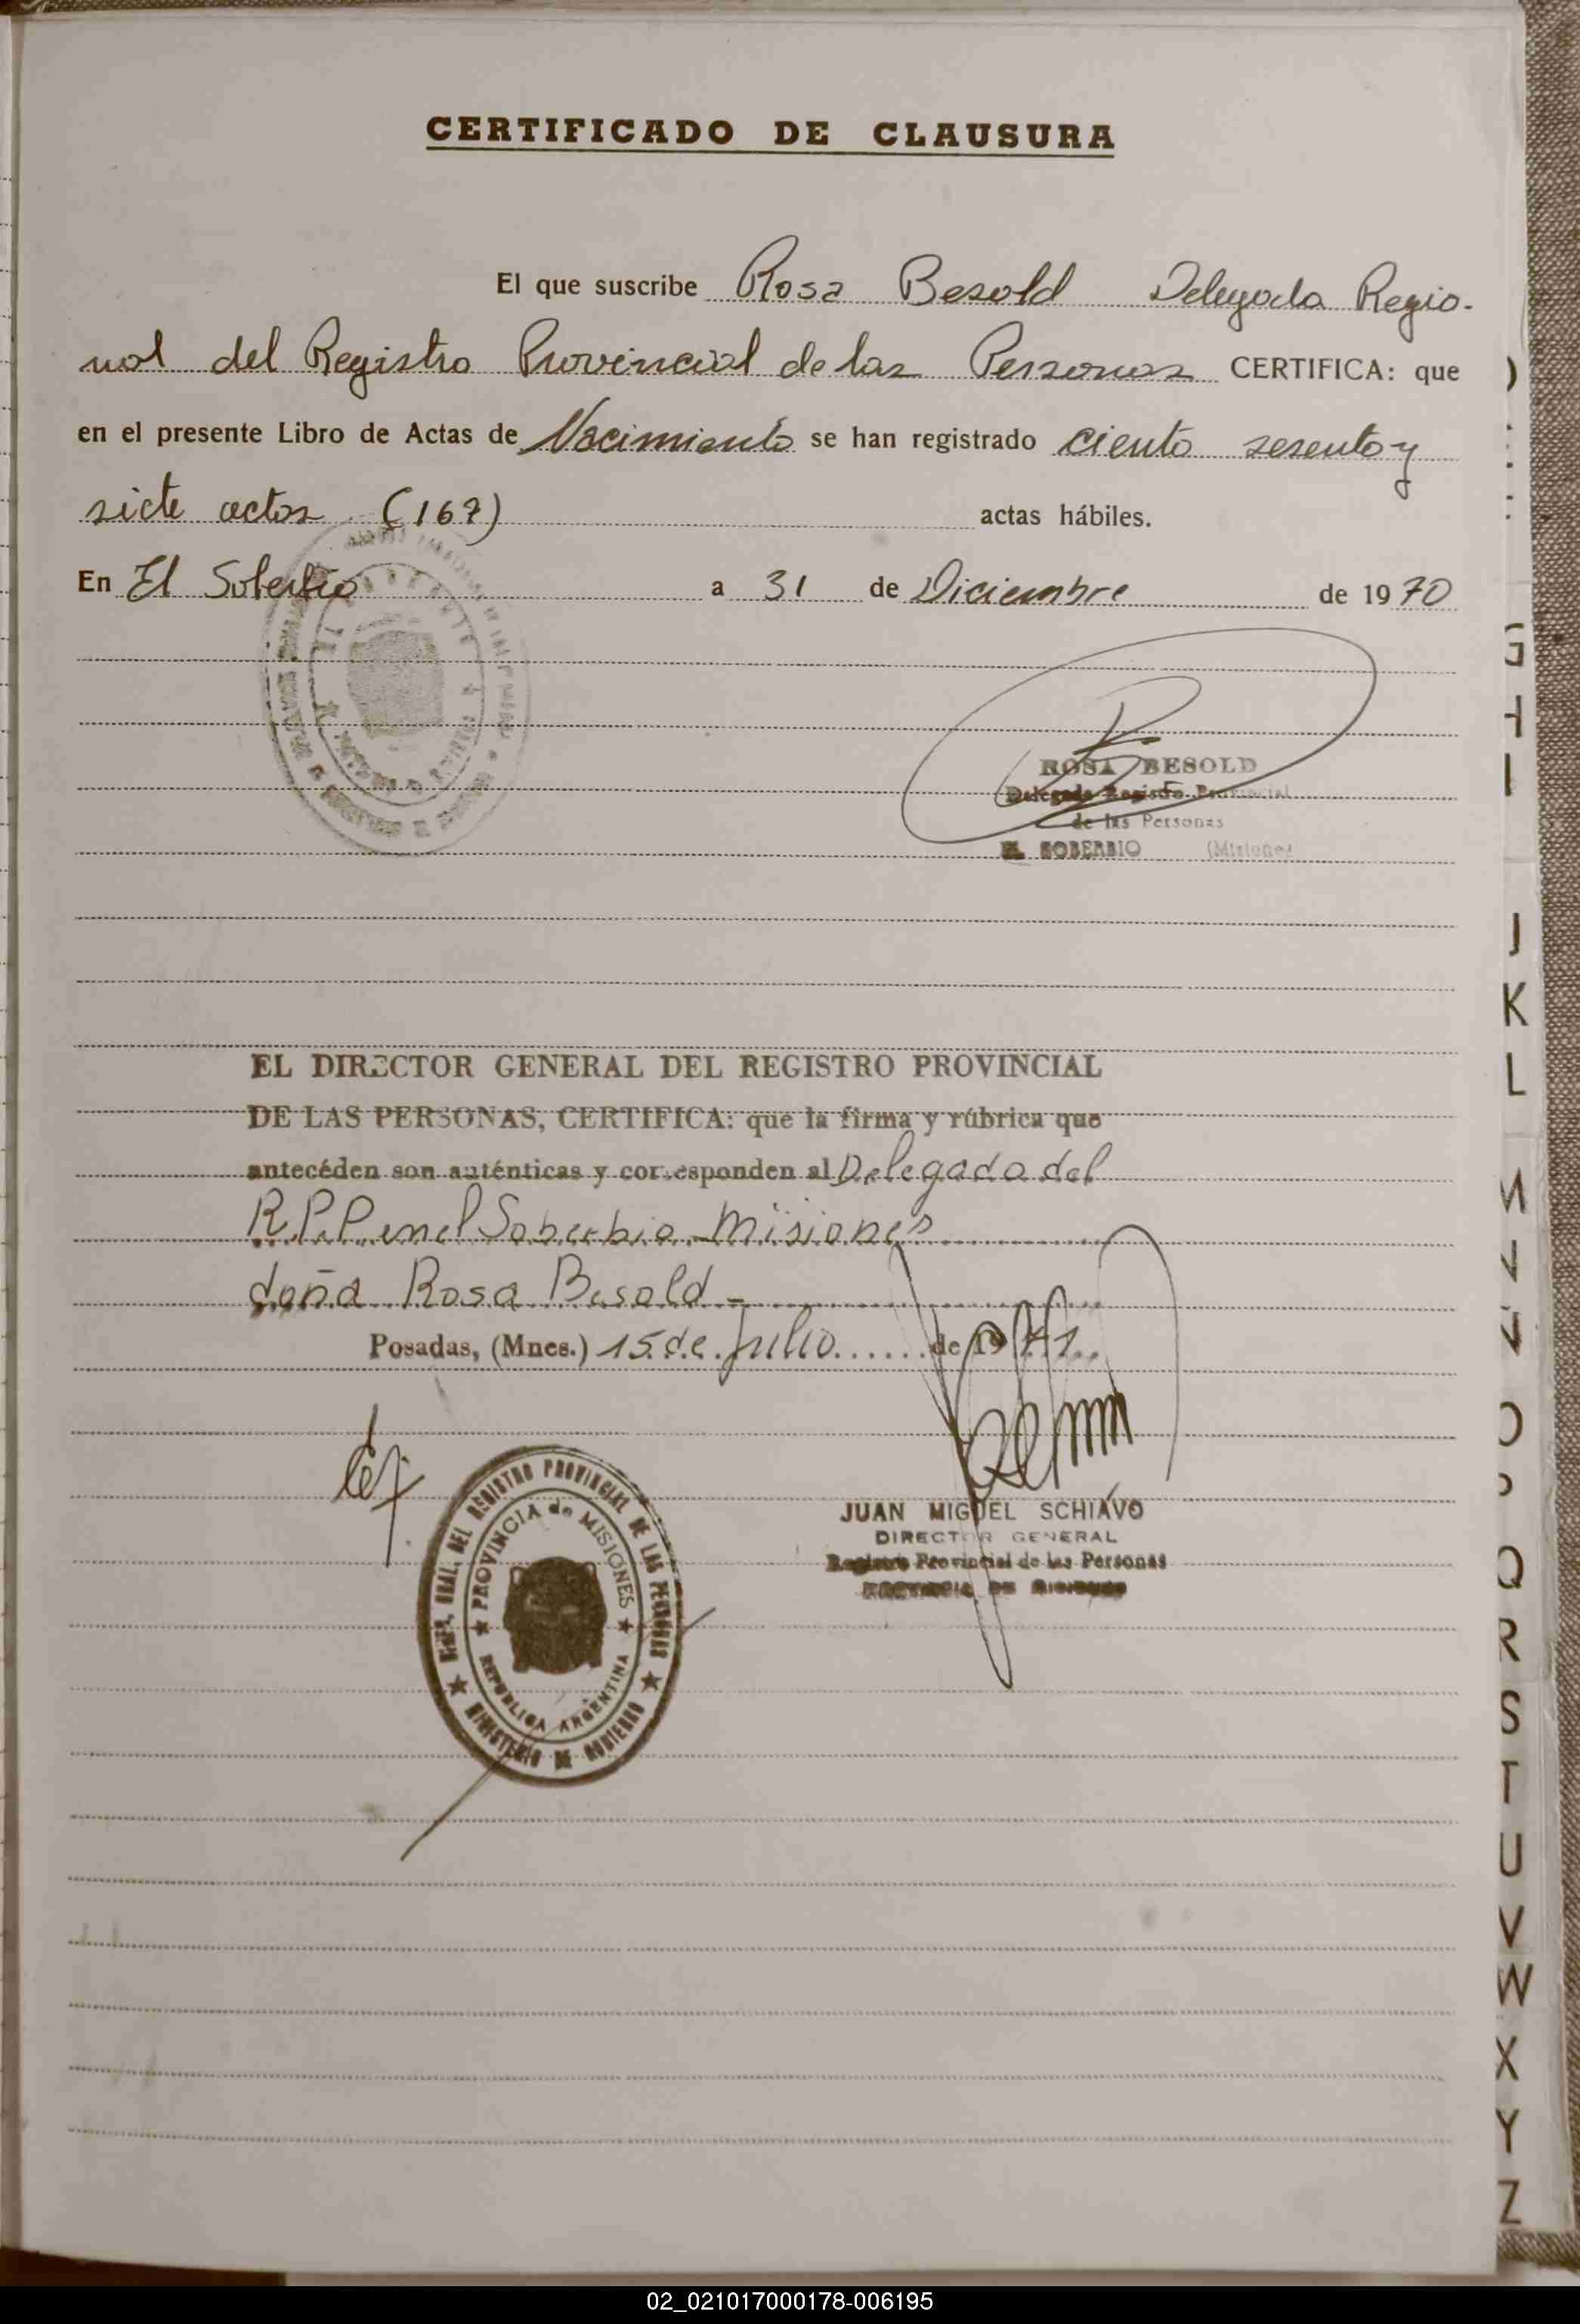 CERTIFICADO DE CLAUSURA
El que suscribe Rosa Besold Delegada Regio-
nal del Registro Provincial de las Personas CERTIFICA: que
en el presente Libro de Actas de Nacimiento se han registrado ciento sesenta y
siete actas (167) actas hábiles.
En El Soberbio a 31 de Diciembre de 1970
ROSA BESOLD
Delegada Registro Provincial
de las Personas
EL SOBERBIO (Misiones
EL DIRECTOR GENERAL DEL REGISTRO PROVINCIAL
DE LAS PERSONAS, CERTIFICA: que la firma y rúbrica que
antecéden son auténticas y corresponden al Delegado del
R.P.P. en el Soberbio - Misiones
doña Rosa Besold -
Posadas, (Mnes.) 15 de Julio de 1971
JUAN MIGUEL SCHIAVO
DIRECTOR GENERAL
Registro Provincial de las Personas
PROVINCIA DE MISIONES
DEL REGISTRO PROVINCIAL DE LAS PERSONAS
PROVINCIA de MISIONES
REPUBLICA ARGENTINA
MINISTERIO DE GOBIERNO
G
H
I
J
K
L
M
N
Ñ
O
P
Q
R
S
T
U
V
W
X
Y
Z
02_021017000178-006195